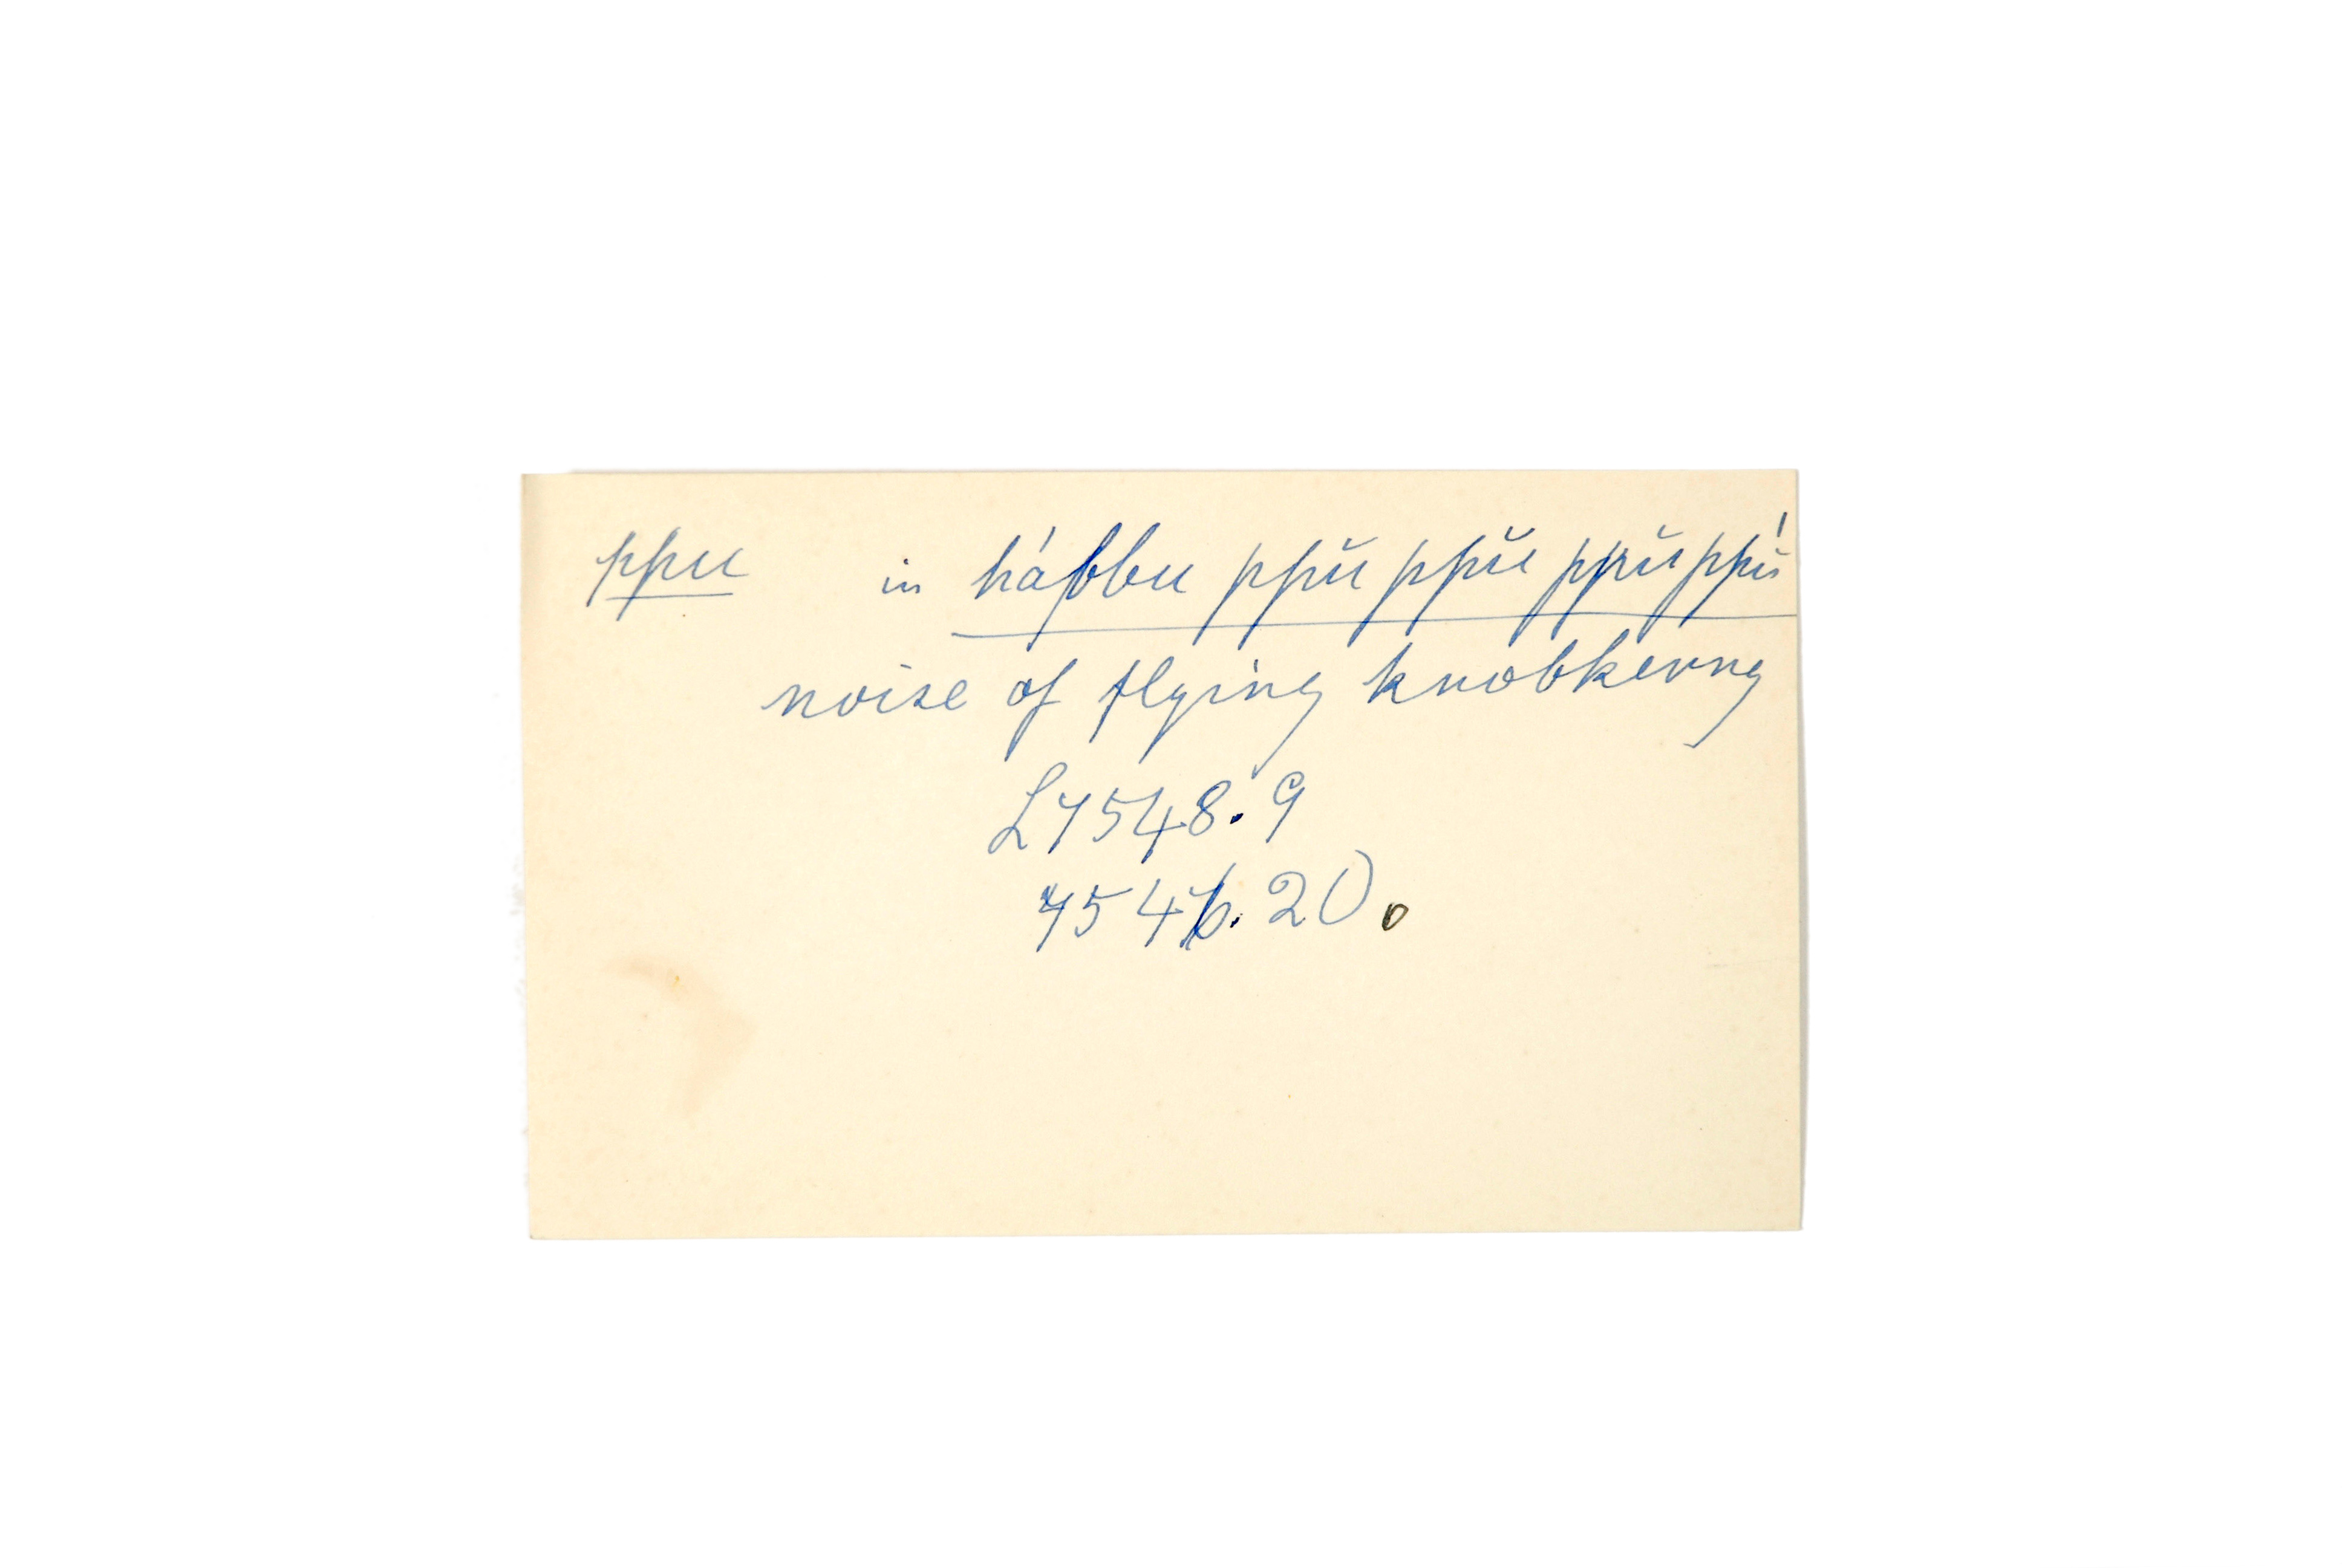 ppu in hábbu ppŭ ppŭ ppŭ ppŭ́
noise of flying knobkerry
L7548.9
7546.20.